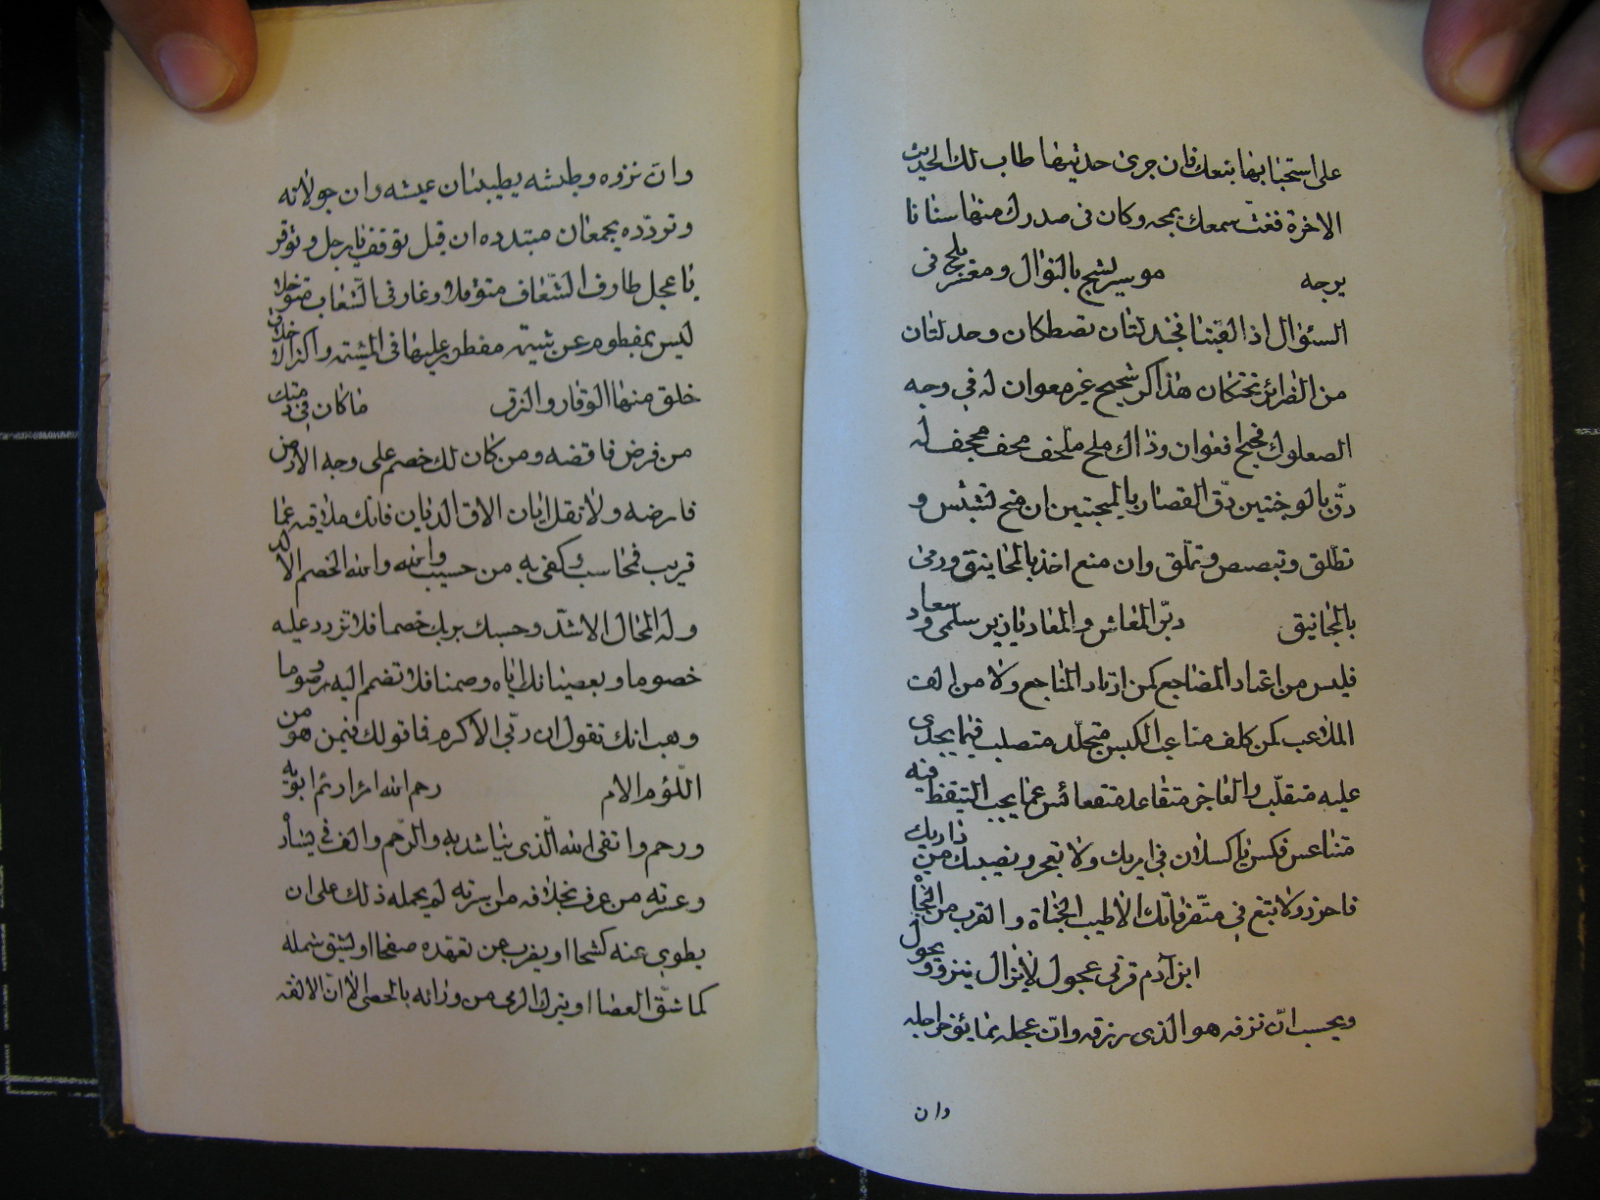 على استحبابها بتبعك فان جرى حديثها طاب لك الحديث
الاخرة فغتّ سمعك بمجه وكان فى صدرك منها سنانا
يرجه موسر يشح بالنوال ومقتر يلح فى
السئوال اذا التقيا فجندلتان تصطكان وجدلتان
من الضرائر تحتكان هذا كز شحيح غير معوان له فى وجه
الصعلوك فحيح افعوان وذاك ملح ملحف مجحف له
دقّ بالوجنتين دقّ القصار بالميجنتين ان منح تبشبش و
تطلق وتبصبص وتملّق وان منع اخذ بالمخانيق ورمى
بالمجانيق دبّر المعاش والمعاد يا زير سلمى وسعاد
فليس من اعتاد المضاجع كمن ارتاد المناجع ولا من الف
الملاعب كمن كلف متاعب الكيس متجلّد متصلب فيما يجدى
عليه متقلّب والعاجز متقاعد متقعائس عما يجب التيقظ فيه
متناعس فكس يا كسلان فى امريك ولا تعجز ونصيبك من داريك
فاحرز ولا تبتغ فى متفر فانّك الاطيب الجناة والقرب من النجاة
ابن آدم قرنى عجول لا يزال ينزو ويجول
ويحسب انّ نزقه هو الذى يرزقه وانّ عجله مما يؤخر اجله
وان
وانّ نزوه وطيشه يطيبان عيشه وان جولانه
وتردّده يجمعان متبدده ان قيل توقف يا رجل وتوقر
يا عجل طار فى الشعاف متوقلا وغار فى الشعاب متوغلا
ليس بمفطوم عن شيمة مفطور عليها فى المشيمة واكثر الاخلاق
خلق منها الوقار والنزق ما كان فى ذمتك
من فرض فاقضه ومن كان لك خصم على وجه الارض
فارضه ولا تقل ايان الاق الديان فانك ملاقيه عما
قريب فمحاسب وكفى به من حسيب والله والله الخصم الالد
وله المحال الاشدّ وحسبك بربك خصما فلا تزدد عليه
خصوما وبعصيانك اياه وصمنا فلا تضم اليه وصوما
وهب انك تقول ان ربّى الاكرم فما قولك فيمن هو من
اللّؤم الام رحم الله امرا رئم ابويه
ورحم واتقى الله الّذى يناشد به والرّحم والف فى يساره
وعسرته من عرف بخلافه من اسرته لم يحمله ذلك على ان
يطوى عنه كشحا او يضرب عن تعهده صفحا او يشق شمله
كما شقّ العصا او يترك الرمى من ورائه بالحصى الا انّ الالفه